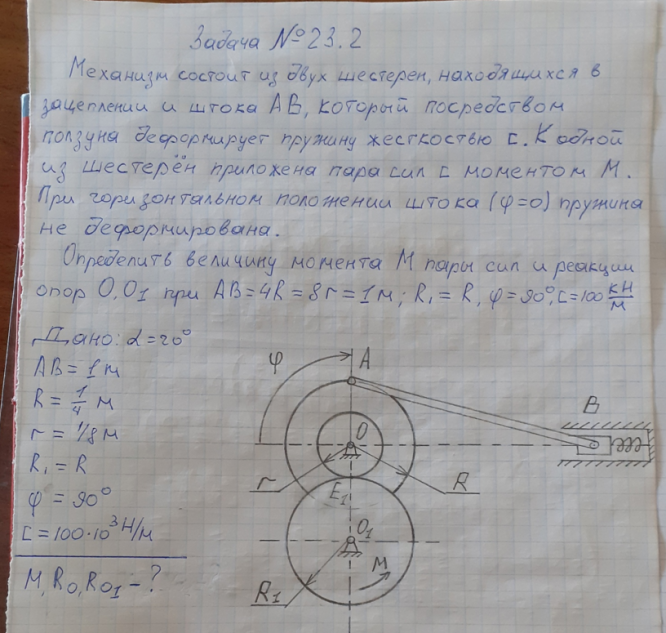 Задача №23.2
Механизм состоит из двух шестерен, находящихся в
зацеплении и штока АВ, который посредством
ползуна деформирует пружину жесткостью с. К одной
из шестерён приложена пара сил с моментом М.
При горизонтальном положении штока (φ=0) пружина
не деформирована.
Определить величину момента М пары сил и реакции
опор О, О₁ при АВ=4R=8r=1м; R₁=R, φ=90°, с=100 кН/м
Дано: α=20°
АВ=1м
R=1/4 м
r=1/8 м
R₁=R
φ=90°
с=100·10³ Н/м
М, R_O, R_O1 -?
φ
A
B
O
r
E₁
R
O₁
M
R₁